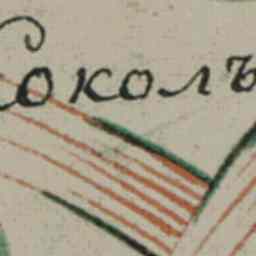 Соколъ